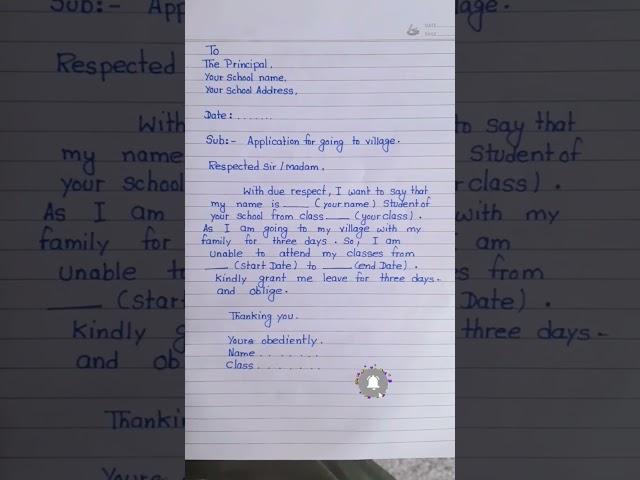 DATE
PAGE
To
The Principal,
Your School name,
Your School Address,
Date: .......
Sub:- Application for going to village.
Respected Sir / Madam,
With due respect, I want to say that
my name is ____ (your name) Student of
your school from class ____ (your class).
As I am going to my village with my
family for three days. So, I am
unable to attend my classes from
____ (Start Date) to ____ (end Date).
Kindly grant me leave for three days.
and oblige.
Thanking you.
Yours obediently.
Name .......
Class .......